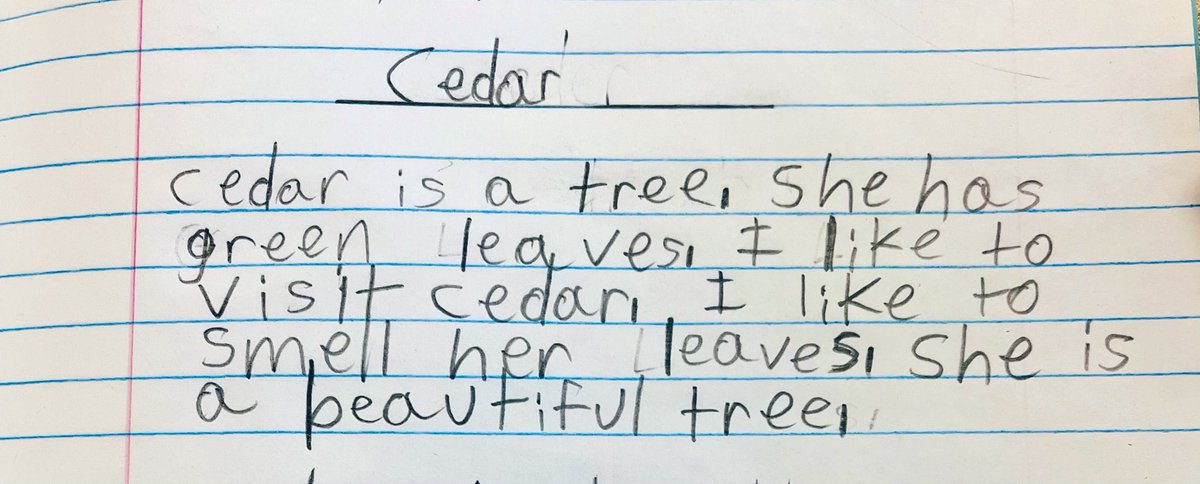 Cedar
cedar is a tree. She has
green leaves. I like to
visit cedar. I like to
smell her leaves. She is
a beautiful tree.